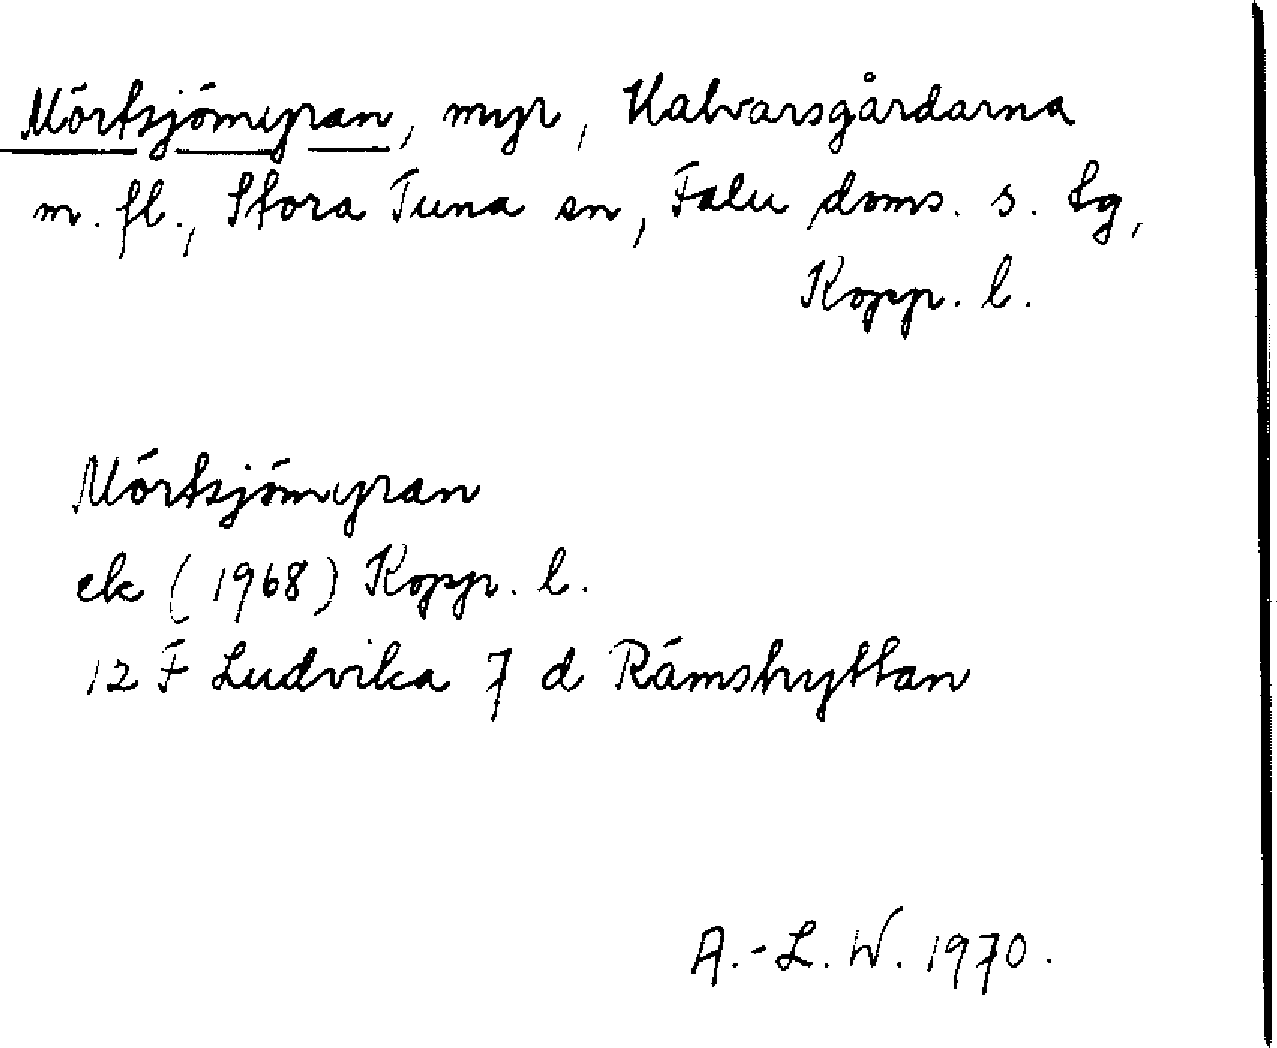 Mörtsjömyran, myr, Halvarsgårdarna
m. fl., Stora Tuna sn, Falu doms. s. tg,
Kopp. l.
Mörtsjömyran
ek (1968) Kopp. l.
12 F Ludvika 7 d Rämshyttan
A.-L. W. 1970.